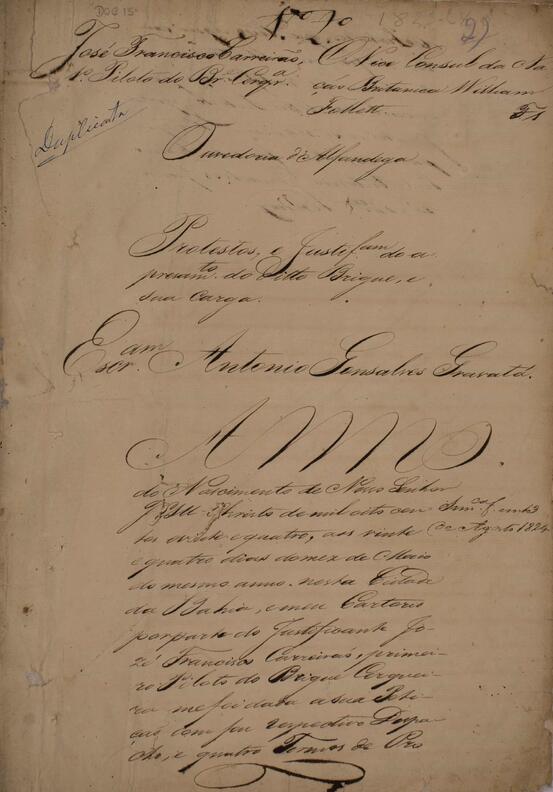 DOC 15
N.º 2º
29
José Francisco Carreirão, O Vice Consul da Na
1º Piloto do Br. Cerqr.ª ção Britanica William
Follett.
Duplicata
Ouvedoria d'Alfandega
Protestos, e Justif.am do a
presam.to do Ditto Brigue, e
sua Carga.
Escr.am Antonio Gonsalves Gravatá.
ANNO
do Nascimento de Nosso Senhor
Jesu Christo de mil oito cen
tos e vinte e quatro, aos vinte
de Agosto 1824
e quatro dias do mez de Maio
do mesmo anno, nesta Cidade
da Bahia, e meu Cartorio
por parte do Justificante Jo-
zé Francisco Carreirão, primei-
ro Piloto do Brigue Cerquei-
ra, me foi dada a sua Peti-
ção com seu respectivo Despa
cho, e quatro Termos de Pro